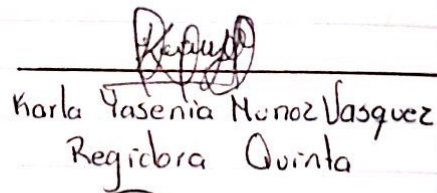 Karla Yasenia Munoz Vasquez
Regidora Quinta